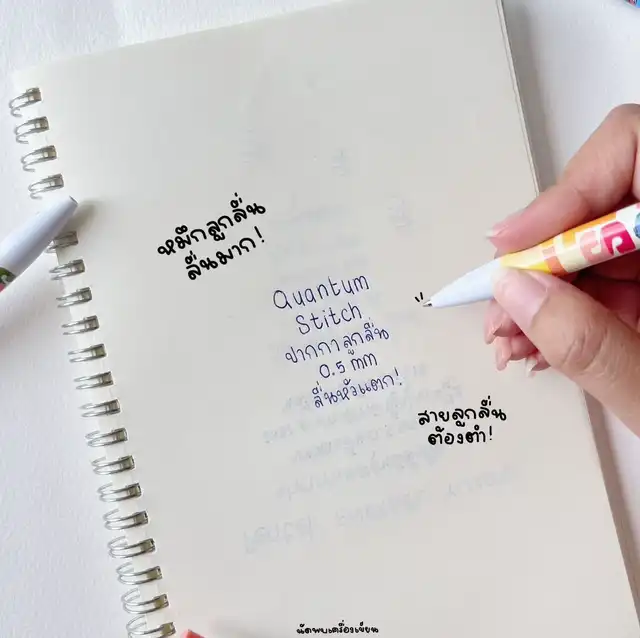 หมึกลูกลื่น
ลื่นมาก!
Quantum
Stitch
ปากกาลูกลื่น
0.5 mm
ลื่นหัวแตก!
สายลูกลื่น
ต้องตำ!
นัดพบเครื่องเขียน